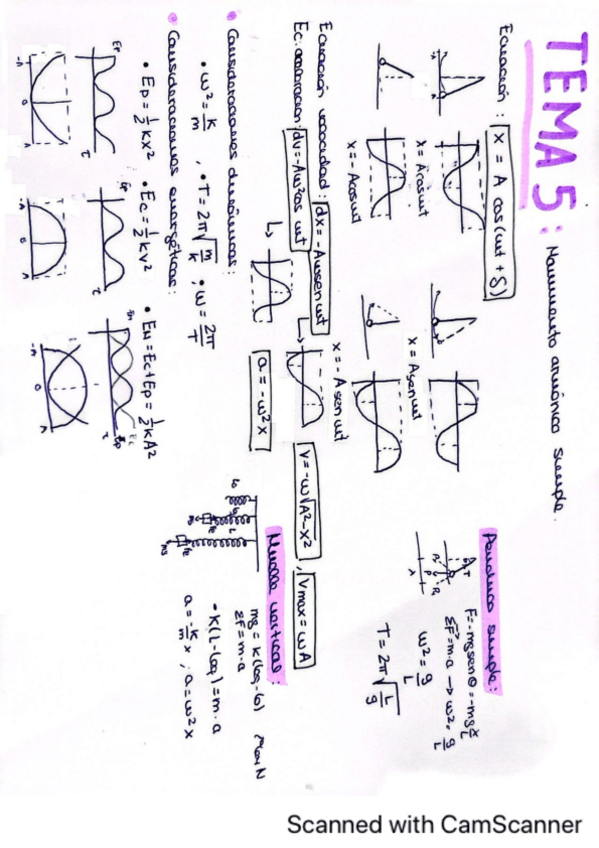 TEMA 5: Movimiento armónico simple.
Ecuación: x = A cos(ωt + δ)
x = A cos ωt
x = -A cos ωt
x = A sen ωt
x = -A sen ωt
Ecuación velocidad: dx = -Aω sen ωt
Ec. aceleración: dv = -Aω² cos ωt
v = -ω√A²-x² , Vmax = ωA
a = -ω²x
• Consideraciones dinámicas:
• ω² = k/m , • T = 2π√m/k • ω = 2π/T
• Consideraciones energéticas:
• Ep = ½ kx² • Ec = ½ kv² • EM = Ec + Ep = ½ kA²
Péndulo simple:
F = -mg sen θ = -mg x/L
ΣF = m·a → ω² = g/L
ω² = g/L
T = 2π√L/g
Muelle vertical:
mg = k(leq - l0)
ΣF = m·a
- k(L - leq) = m·a
a = -k/m x ; a = ω²x
Scanned with CamScanner